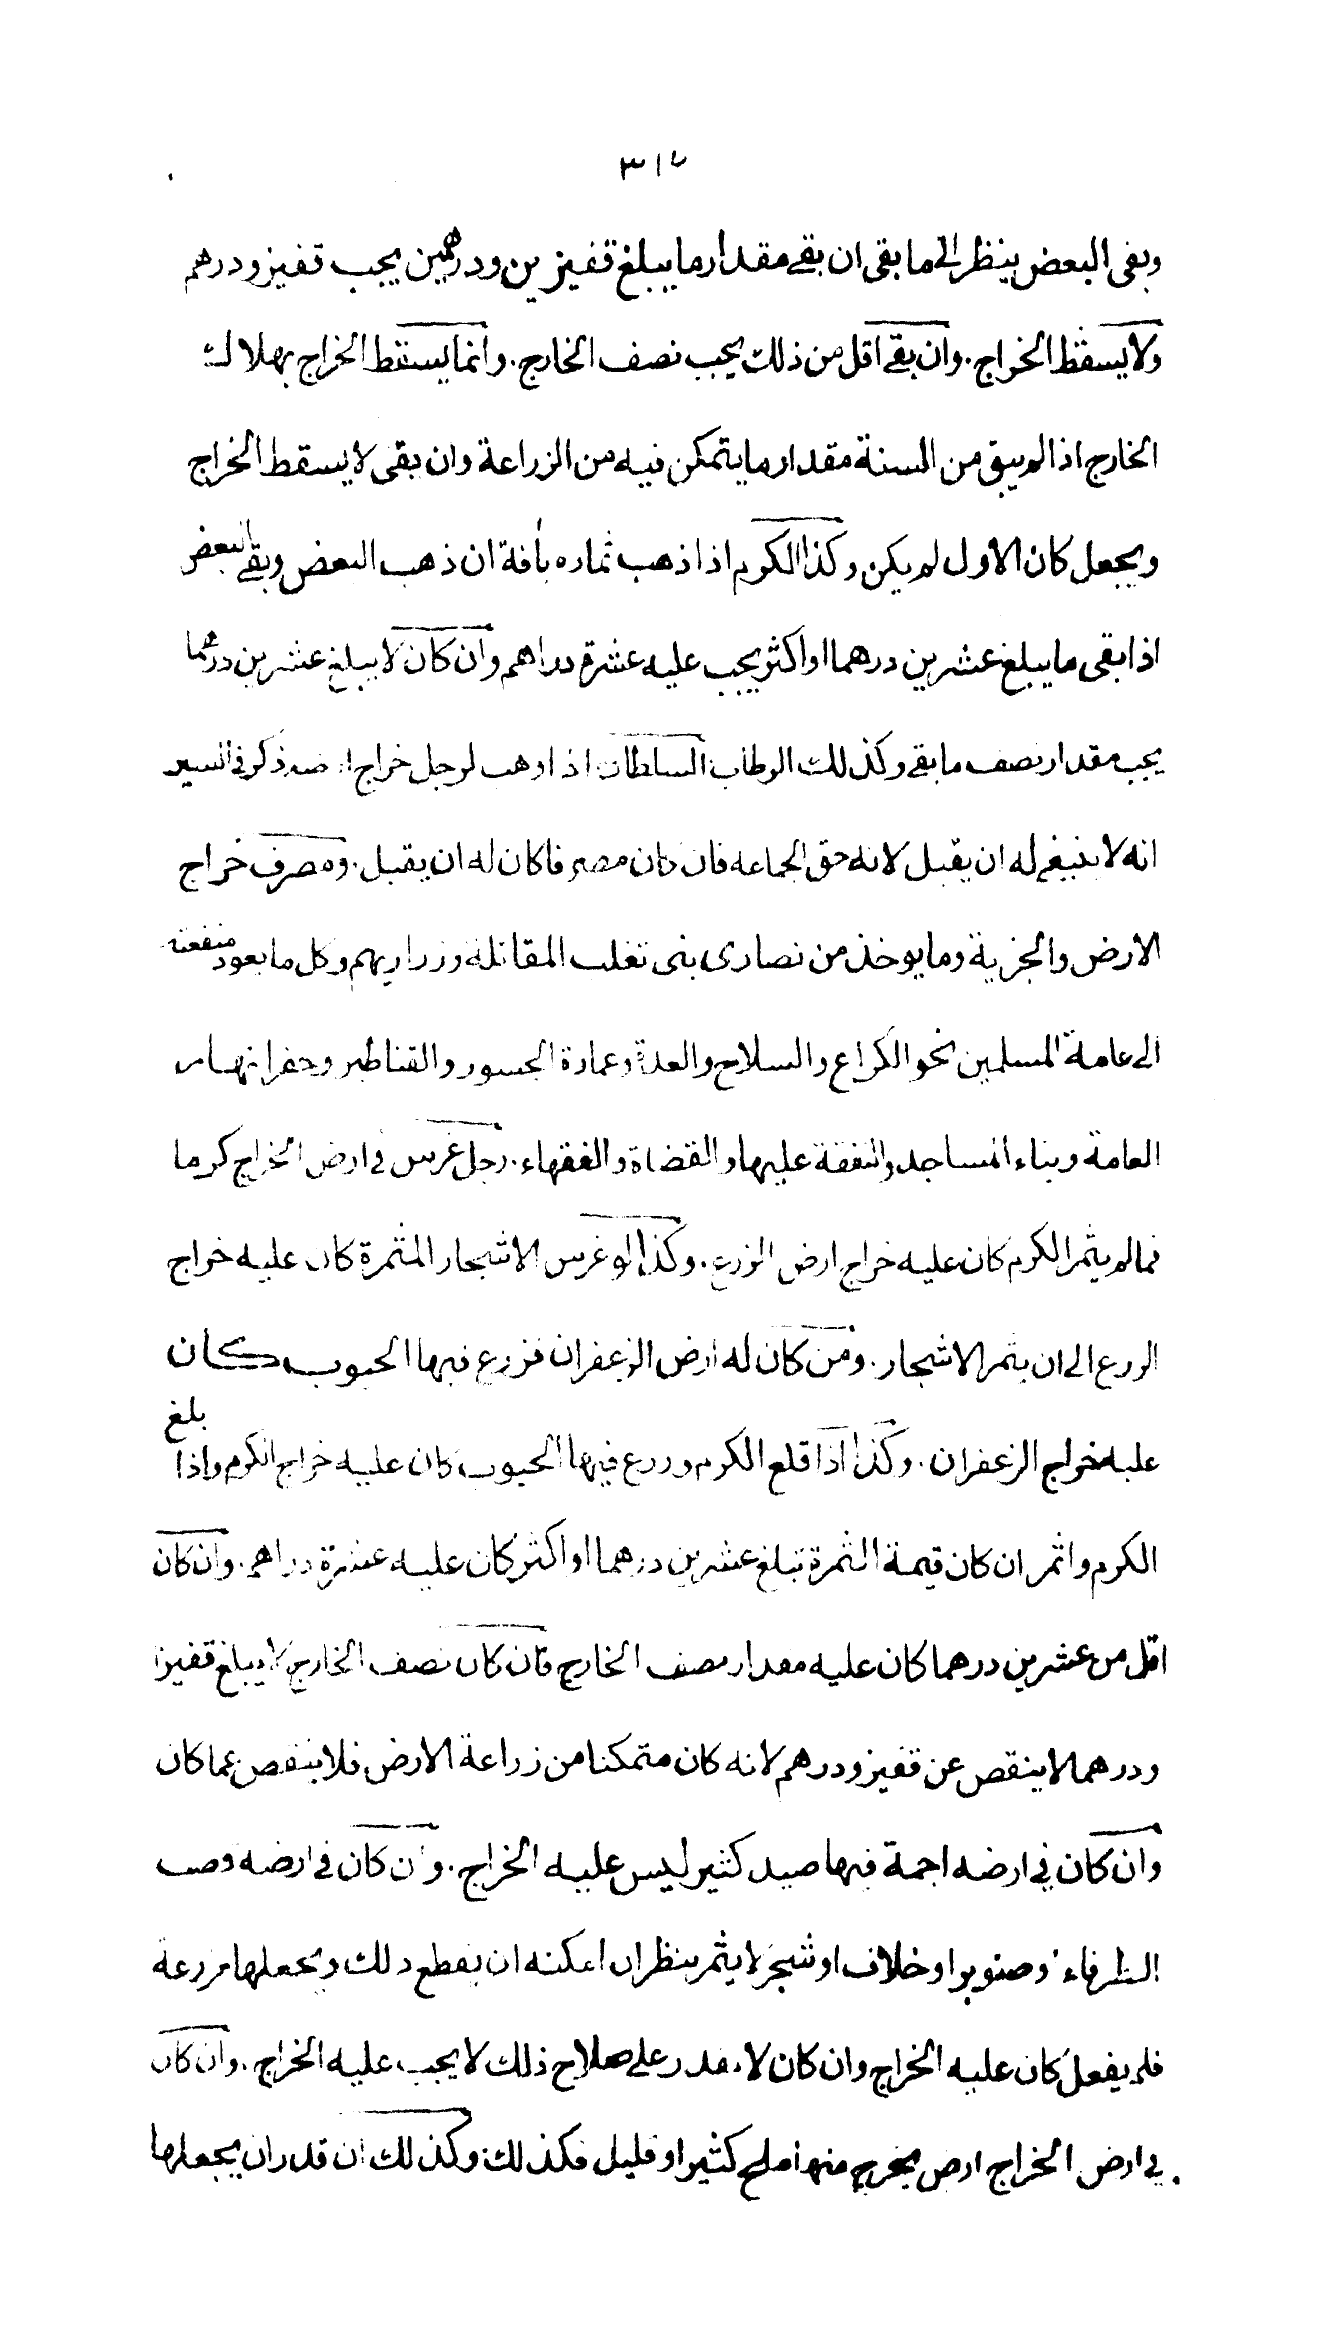 ٣١٢
وبقى البعض ينظر الى ما بقى ان بقى مقدار ما يبلغ قفيزين ودرهمين يجب قفيز ودرهم
ولا يسقط الخراج. وان بقى اقل من ذلك يجب نصف الخارج. وانما يسقط الخراج بهلاك
الخارج اذا لم يبق من السنة مقدار ما يتمكن فيه من الزراعة وان بقى لا يسقط الخراج
ويجعل كان الاول لم يكن وكذا الكرم اذا ذهب ثماره بأفة ان ذهب البعض وبقى البعض
اذا بقى ما يبلغ عشرين درهما او اكثر يجب عليه عشرة دراهم وان كان لا يبلغ عشرين درهما
يجب مقدار نصف ما بقى وكذلك الرطاب السلطان اذا وهب لرجل خراج ارضه ذكر في السير
انه لا ينبغى له ان يقبل لانه حق الجماعه فان كان مصرفا كان له ان يقبل. ومصرف خراج
الارض والجزية وما يوخذ من نصارى بنى تغلب المقاتلة وزراريهم وكل ما يعود منفعته
الى عامة المسلمين نحو الكراع والسلاح والعدة وعمارة الجسور والقناطير وحفر انهار
العامة وبناء المساجد والنفقة عليها والقضاة والفقهاء. رجل غرس في ارض الخراج كرما
فما لم يثمر الكرم كان عليه خراج ارض الزرع. وكذا لو غرس الاشجار المثمرة كان عليه خراج
الزرع الى ان يثمر الاشجار. ومن كان له ارض الزعفران فزرع فيها الحبوب كان
عليه خراج الزعفران. وكذا اذا قلع الكرم وزرع فيها الحبوب كان عليه خراج الكرم واذا بلغ
الكرم واثمر ان كان قيمة الثمرة تبلغ عشرين درهما او اكثر كان عليه عشرة دراهم. وان كان
اقل من عشرين درهما كان عليه مقدار نصف الخارج فان كان نصف الخارج لا يبلغ قفيزا
ودرهما لا ينقص عن قفيز ودرهم لانه كان متمكنا من زراعة الارض فلا ينقص عما كان
وان كان في ارضه اجمة فيها صيد كثير ليس عليه الخراج. وان كان في ارضه وصب
الطرفاء او صنوبر او خلاف او شجر لا يثمر ينظر ان امكنه ان يقطع ذلك ويجعلها مزرعة
فلم يفعل كان عليه الخراج وان كان لا يقدر على صلاح ذلك لا يجب عليه الخراج. وان كان
في ارض الخراج ارض يخرج منها ملح كثير او قليل فكذلك وكذلك ان قدر ان يجعلها